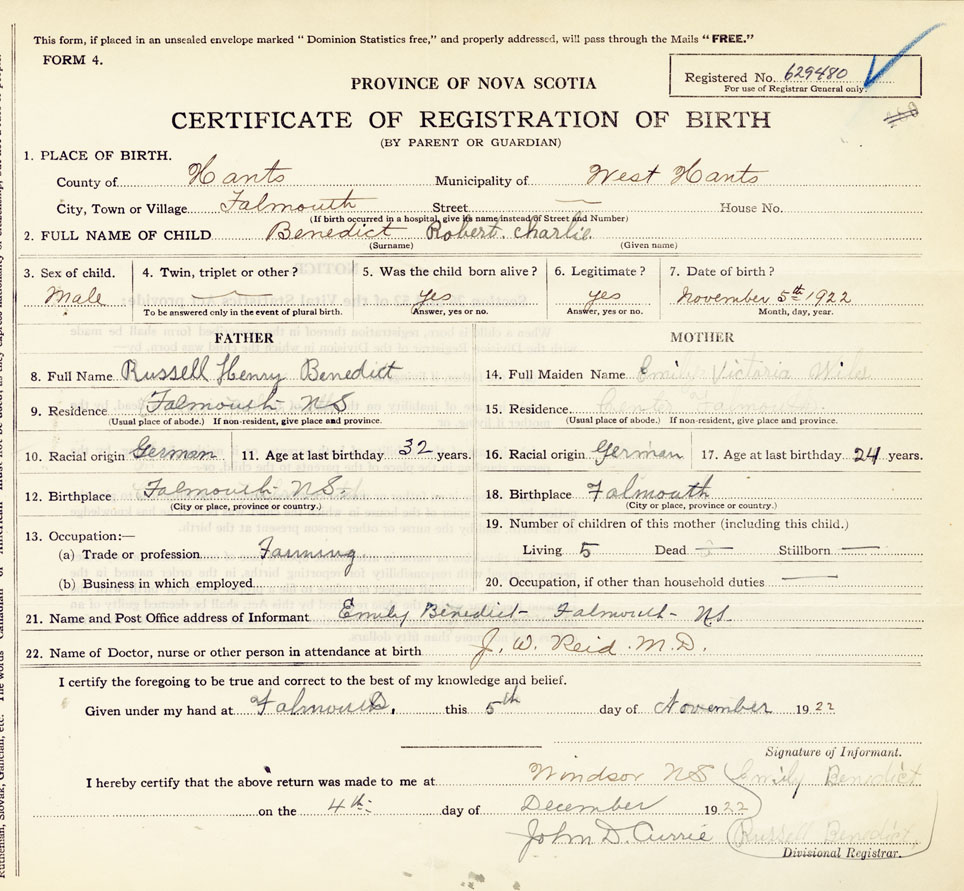 This form, if placed in an unsealed envelope marked "Dominion Statistics free," and properly addressed, will pass through the Mails "FREE."
FORM 4.
Registered No. 629480
For use of Registrar General only.
PROVINCE OF NOVA SCOTIA
CERTIFICATE OF REGISTRATION OF BIRTH
(BY PARENT OR GUARDIAN)
1. PLACE OF BIRTH.
County of Hants Municipality of West Hants
City, Town or Village Falmouth Street House No.
(If birth occurred in a hospital, give its name instead of Street and Number)
2. FULL NAME OF CHILD Benedict Robert Charlie
(Surname) (Given name)
3. Sex of child. 4. Twin, triplet or other? 5. Was the child born alive? 6. Legitimate? 7. Date of birth?
Male yes yes November 5th 1922
To be answered only in the event of plural birth. Answer, yes or no. Answer, yes or no. Month, day, year.
FATHER MOTHER
8. Full Name Russell Henry Benedict 14. Full Maiden Name Emily Victoria Wile
9. Residence Falmouth NS 15. Residence. Falmouth
(Usual place of abode.) If non-resident, give place and province. (Usual place of abode.) If non-resident, give place and province.
10. Racial origin German 11. Age at last birthday 32 years. 16. Racial origin German 17. Age at last birthday 24 years.
12. Birthplace Falmouth NS. 18. Birthplace Falmouth
(City or place, province or country.) (City or place, province or country.)
19. Number of children of this mother (including this child.)
13. Occupation:—
(a) Trade or profession Farming Living 5 Dead — Stillborn —
(b) Business in which employed 20. Occupation, if other than household duties —
21. Name and Post Office address of Informant Emily Benedict - Falmouth - NS.
22. Name of Doctor, nurse or other person in attendance at birth J. W. Reid. M.D.
I certify the foregoing to be true and correct to the best of my knowledge and belief.
Given under my hand at Falmouth, this 5th day of November 1922
Signature of Informant.
I hereby certify that the above return was made to me at Windsor NS Emily Benedict
on the 4th day of December 1922
John D. Currie Russell Benedict
Divisional Registrar.